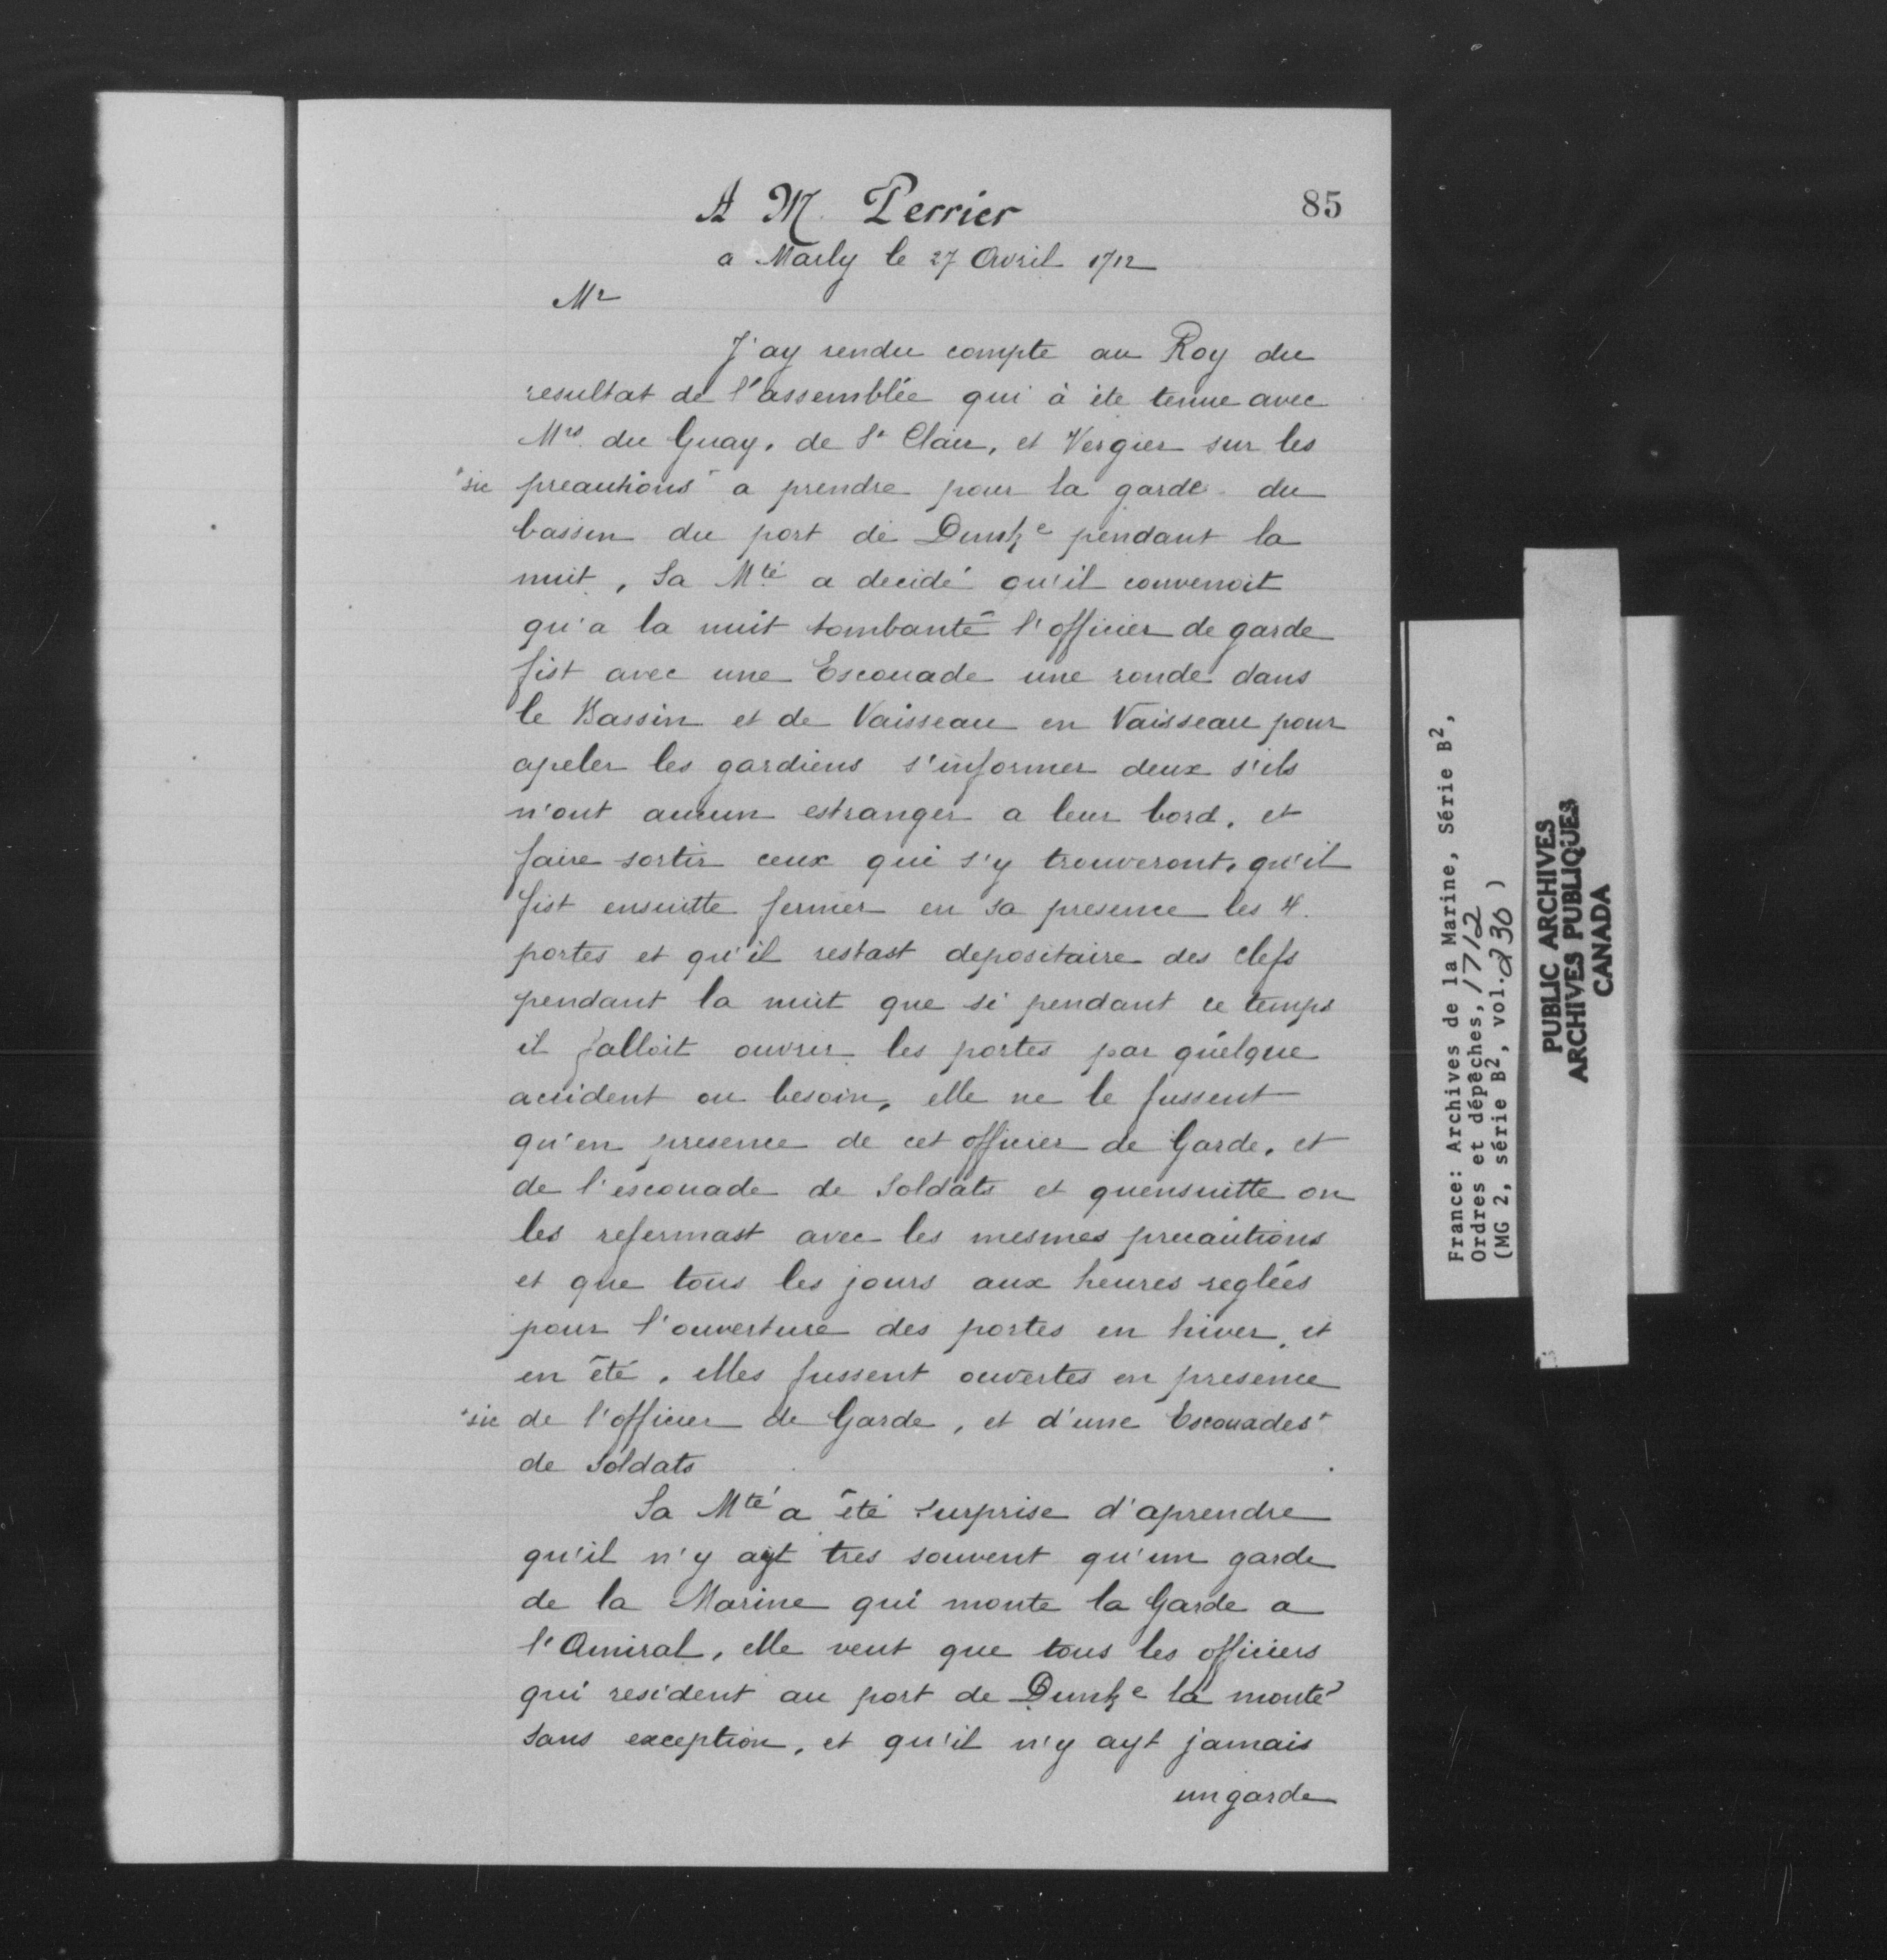 85
A M. Perrier
a Marly le 27 Avril 1712
Mr
J'ay rendu compte au Roy du
resultat de l'assemblée qui à éte tenue avec
Mrs. du Guay, de St Clair, et Vergier sur les
"sic preautions" a prendre pour la garde du
bassin du port de Dunke pendant la
nuit, Sa Mté a decidé qu'il convenoit
qu'a la nuit tombante l'officier de garde
fist avec une Escouade une ronde dans
le Bassin et de Vaisseau en Vaisseau pour
apeler les gardiens s'informer deux s'ils
n'ont aucun estranger a leur bord, et
faire sortir ceux qui s'y trouveront, qu'il
fist ensuitte fermer en sa presence les 4.
portes et qu'il restast depositaire des clefs
pendant la nuit que si pendant ce temps
il falloit ouvrir les portes par quelque
accident ou besoin, elle ne le fussent
qu'en presence de cet officier de Garde, et
de l'escouade de Soldats et quensuitte on
les refermast avec les mesmes precautions
et que tous les jours aux heures reglées
pour l'ouverture des portes en hiver, et
en été, elles fussent ouvertes en presence
"sic de l'officier de Garde, et d'une Escouades"
de Soldats
Sa Mté a été surprise d'aprendre
qu'il n'y ayt tres souvent qu'un garde
de la Marine qui monte la Garde a
l'Amiral, elle veut que tous les officiers
qui resident au port de Dunke la monte
sans exception, et qu'il n'y ayt jamais
un garde
France: Archives de la Marine, Série B2,
Ordres et dépêches, 1712
(MG 2, série B2, vol. 230 )
PUBLIC ARCHIVES
ARCHIVES PUBLIQUES
CANADA